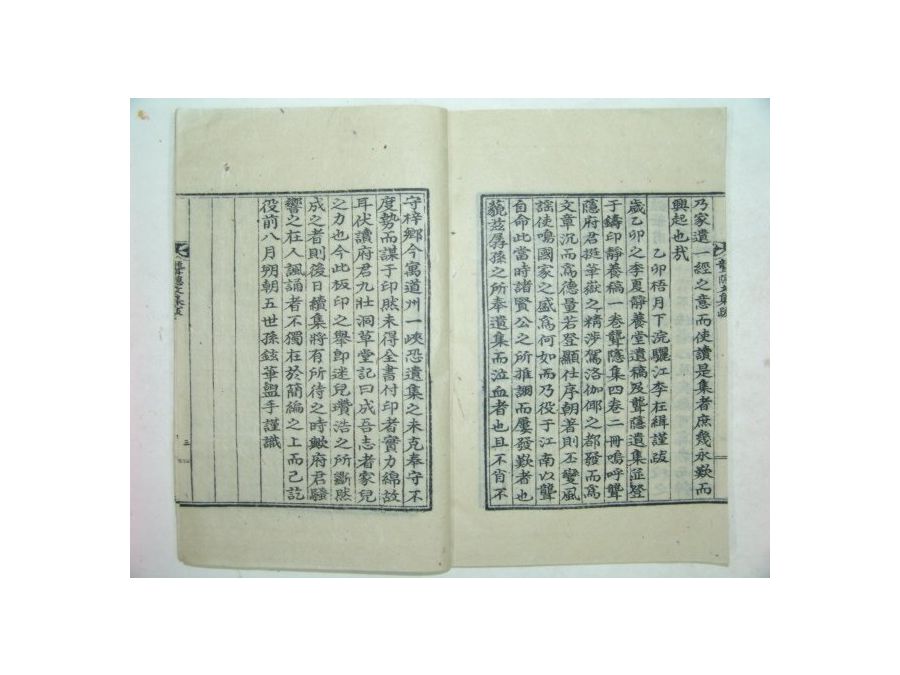 乃家遺一經之意而使讀是集者庶幾永歎而
興起也哉
乙卯梧月下浣驪江李在緝謹跋
歲乙卯之季夏靜養堂遺稿及聾隱遺集並登
于鑄印靜養稿一卷聾隱集四卷二冊嗚呼聾
隱府君挺華嶽之精涉駕洛伽倻之都發而爲
文章沉而爲德量若登顯仕序朝著則丕變風
謠使鳴國家之盛爲何如而乃役于江南以聾
自命此當時諸賢公之所推詡而屢發歎者也
藐玆孱孫之所奉遺集而泣血者也且不肖不
聾隱文集跋
守梓鄉今寓道州一峽恐遺集之未克奉守不
度勢而謀于印然未得全書付印者實力綿故
耳伏讀府君九壯洞草堂記曰成吾志者家兒
之力也今此板印之舉即迷兒瓚浩之所斷然
成之者則後日續集將有所待之時歟府君騷
響之在人諷誦者不獨在於簡編之上而已訖
役前八月朔朝五世孫鉉華盥手謹識
聾隱文集跋
三